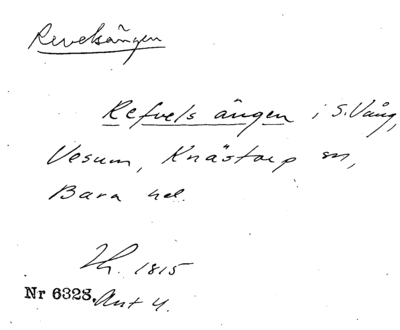 Revelsängen
Refvels ängen i S. Vång,
Vesum, Knästorp sn,
Bara hd.
Th. 1815
Nr 6328. Ant 4.